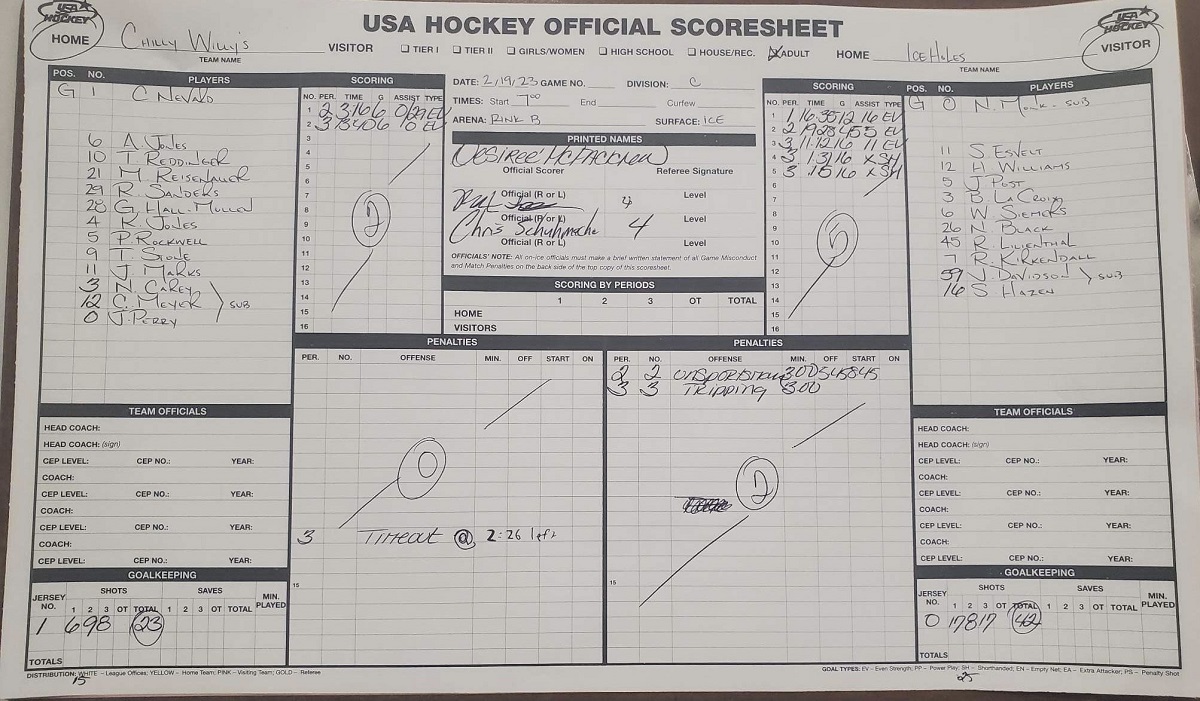 USA HOCKEY
HOME
CHILLY WILLY'S
TEAM NAME
USA HOCKEY OFFICIAL SCORESHEET
VISITOR ☐ TIER I ☐ TIER II ☐ GIRLS/WOMEN ☐ HIGH SCHOOL ☐ HOUSE/REC. ☒ ADULT HOME
ICEHOLES
TEAM NAME
USA HOCKEY
VISITOR
POS. NO. PLAYERS
G 1 C. NEVALD
6 A. JONES
10 T. REDDINGER
21 M. REISENAUER
29 R. SANDERS
28 G. HALL-MULLEN
4 K. JONES
5 P. ROCKWELL
9 T. STONE
11 J. MARKS
3 N. CAREY
12 C. MEYER SUB
0 J. PERRY
SCORING
NO. PER. TIME G ASSIST TYPE
1 2 3:16 6 0/29 EV
2 3 13:40 6 10 EV
3
4
5
6
7
8
9
10
11
12
13
14
15
16
2
DATE: 2/19/23 GAME NO. DIVISION: C
TIMES: Start 7:00 End Curfew
ARENA: RINK B SURFACE: ICE
PRINTED NAMES
DESIREE' MCFADDEN
Official Scorer Referee Signature
Official (R or L) 4 Level
Official (R or L) Level
Chris Schuhmache 4
Official (R or L) Level
OFFICIALS' NOTE: All on-ice officials must make a brief written statement of all Game Misconduct
and Match Penalties on the back side of the top copy of this scoresheet.
SCORING BY PERIODS
1 2 3 OT TOTAL
HOME
VISITORS
SCORING
NO. PER. TIME G ASSIST TYPE
1 1 16:35 12 16 EV
2 2 19:28 45 5 EV
3 3 11:12 16 11 EV
4 3 1:31 16 X SH
5 3 :15 16 X SH
6
7
8
9
10
11
12
13
14
15
16
5
POS. NO. PLAYERS
G 0 N. MONK - SUB
11 S ESVELT
12 H WILLIAMS
5 J POST
3 B. LA CROIX
6 W. SIEMERS
26 N BLACK
45 R. LILIENTHAL
7 R. KIRKENDALL
59 J. DAVIDSON SUB
16 S HAZEN
PENALTIES
PER. NO. OFFENSE MIN. OFF START ON
0
3 TIMEOUT @ 2:26 left
15
PENALTIES
PER. NO. OFFENSE MIN. OFF START ON
2 2 3:00 5:45 8:45
3 3 TRIPPING 3:00
2
15
TEAM OFFICIALS
HEAD COACH:
HEAD COACH: (sign)
CEP LEVEL: CEP NO.: YEAR:
COACH:
CEP LEVEL: CEP NO.: YEAR:
COACH:
CEP LEVEL: CEP NO.: YEAR:
COACH:
CEP LEVEL: CEP NO.: YEAR:
GOALKEEPING
JERSEY NO. SHOTS SAVES MIN. PLAYED
1 2 3 OT TOTAL 1 2 3 OT TOTAL
1 6 9 8 23
TOTALS
TEAM OFFICIALS
HEAD COACH:
HEAD COACH: (sign)
CEP LEVEL: CEP NO.: YEAR:
COACH:
CEP LEVEL: CEP NO.: YEAR:
COACH:
CEP LEVEL: CEP NO.: YEAR:
COACH:
CEP LEVEL: CEP NO.: YEAR:
GOALKEEPING
JERSEY NO. SHOTS SAVES MIN. PLAYED
1 2 3 OT TOTAL 1 2 3 OT TOTAL
0 17 8 17 42
TOTALS
DISTRIBUTION: WHITE – League Offices; YELLOW – Home Team; PINK – Visiting Team; GOLD – Referee
GOAL TYPES: EV – Even Strength; PP – Power Play; SH – Shorthanded; EN – Empty Net; EA – Extra Attacker; PS – Penalty Shot
15
25